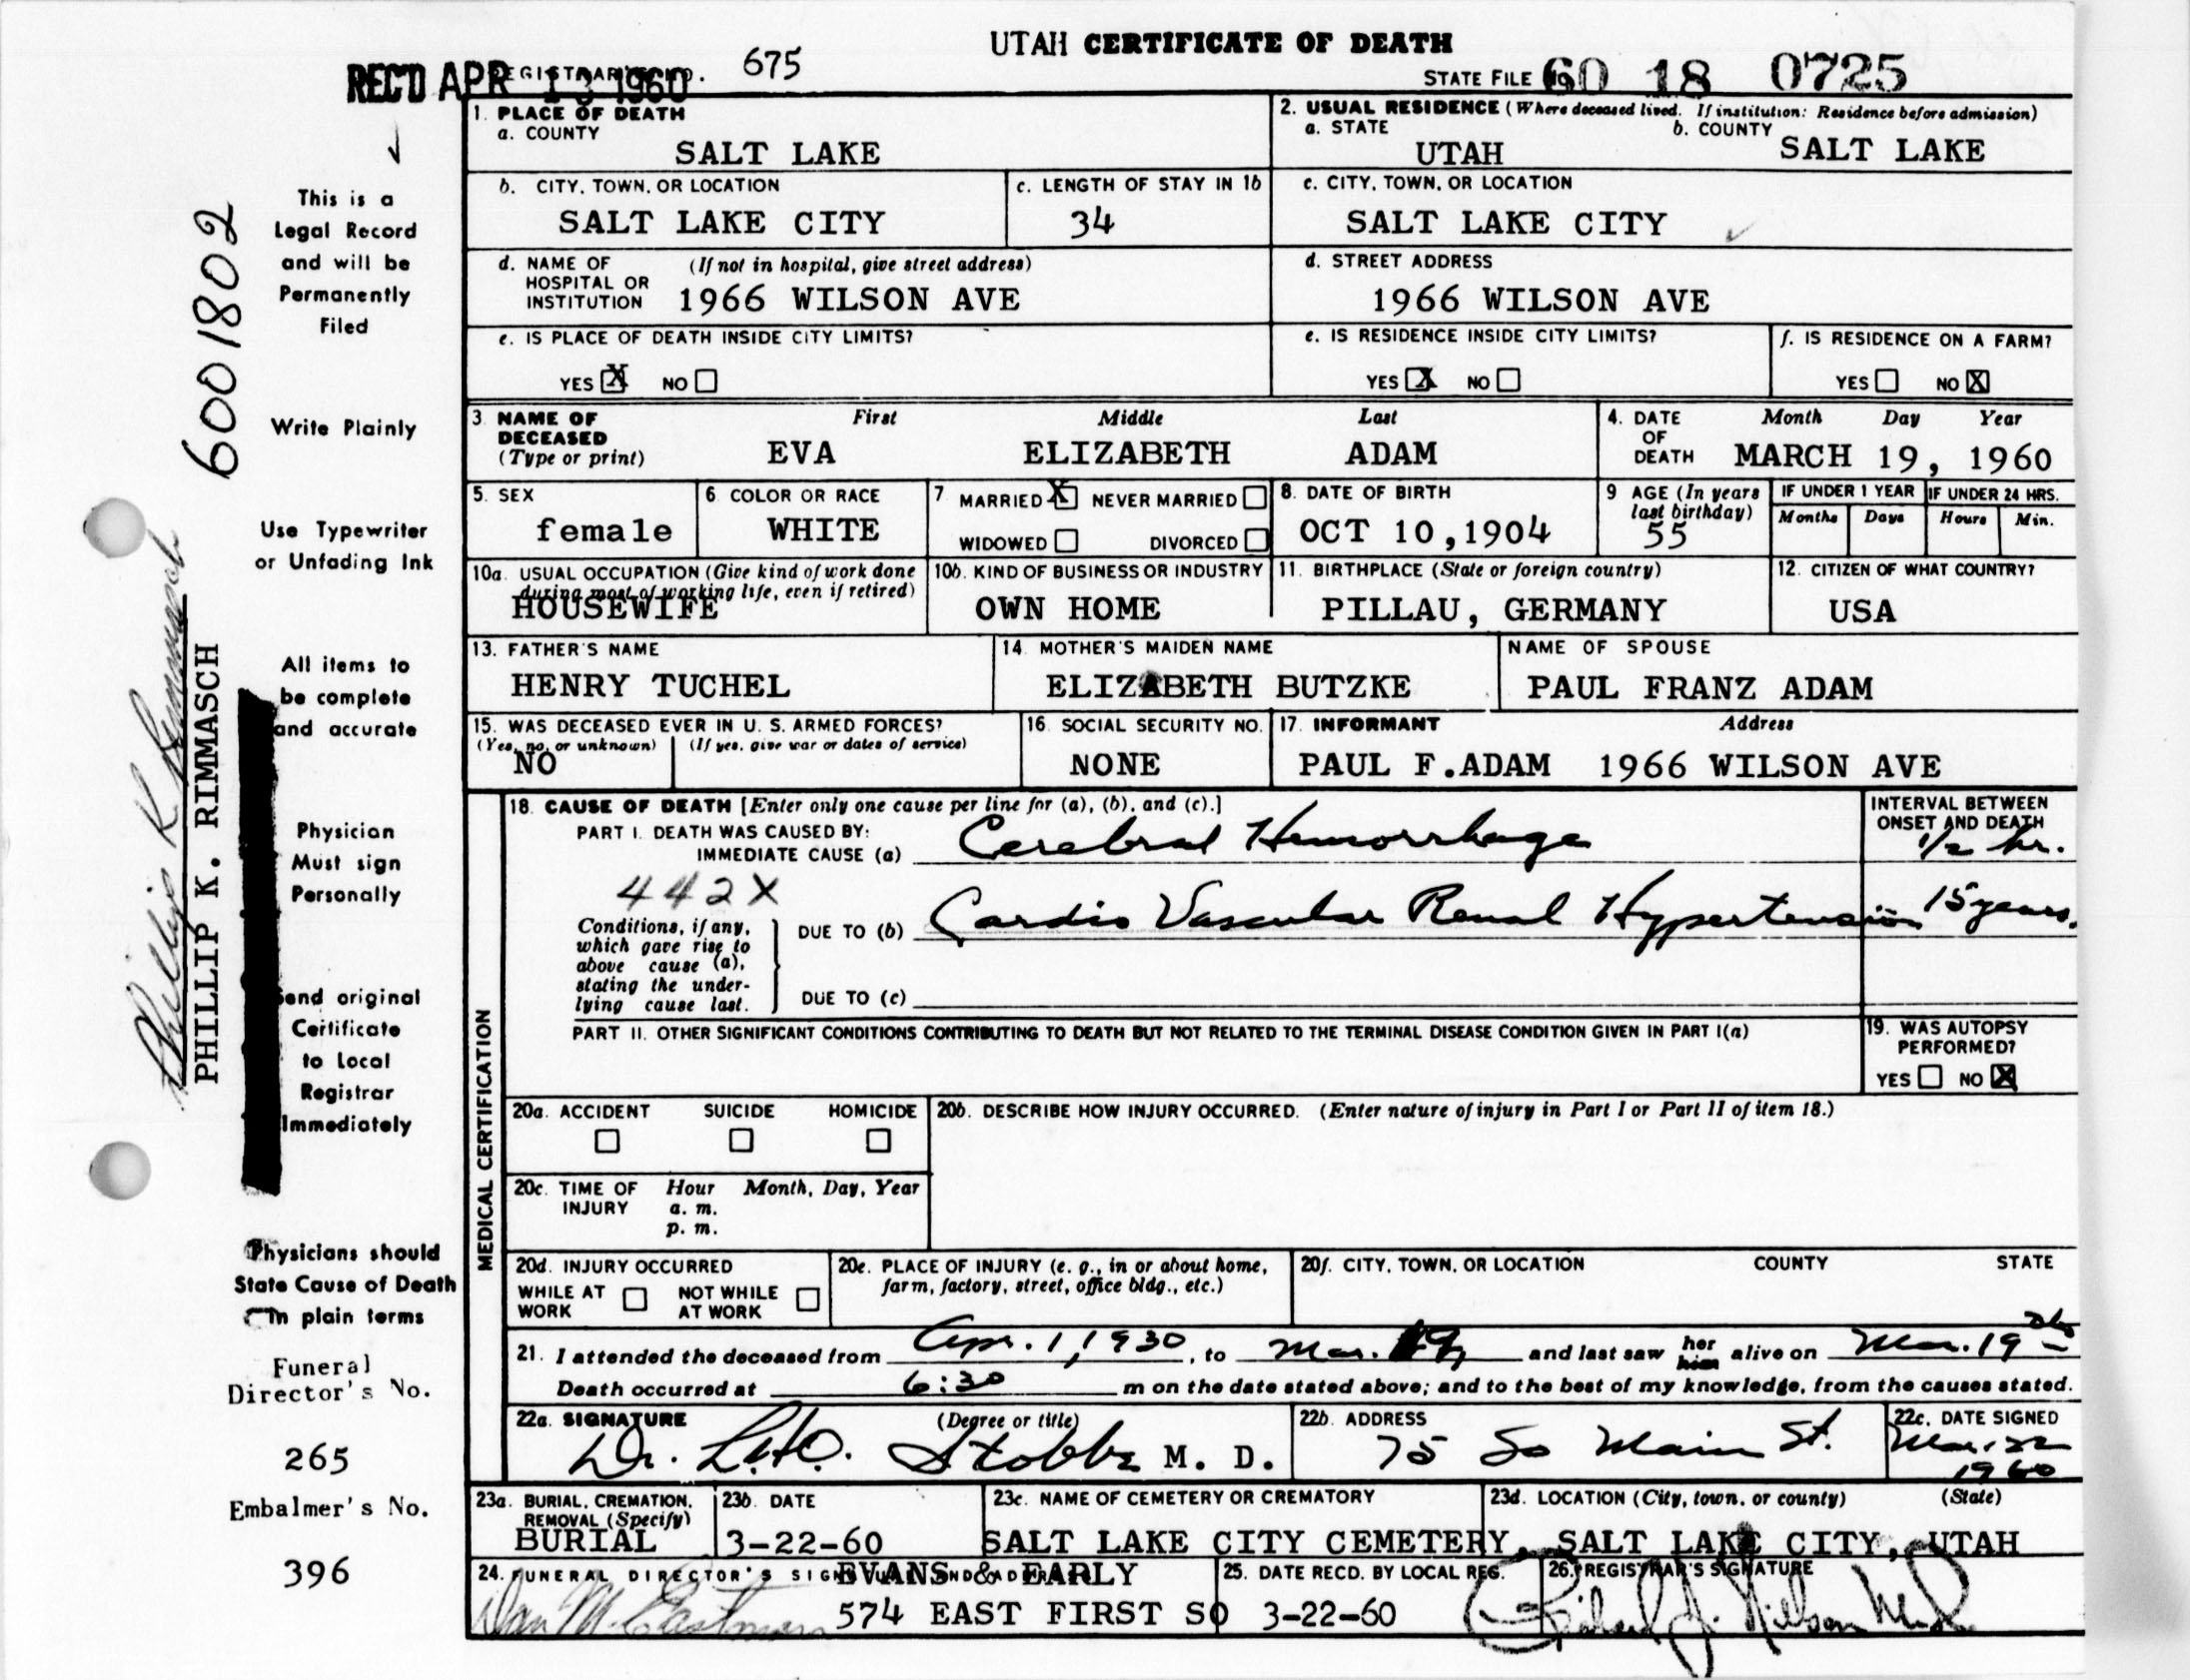 UTAH CERTIFICATE OF DEATH
REC'D APR 13 1960
REGISTRAR'S NO. 675
STATE FILE NO. 60 18 0725
1. PLACE OF DEATH
a. COUNTY
SALT LAKE
2. USUAL RESIDENCE (Where deceased lived. If institution: Residence before admission)
a. STATE b. COUNTY
UTAH SALT LAKE
b. CITY, TOWN, OR LOCATION c. LENGTH OF STAY IN 1b
SALT LAKE CITY 34
c. CITY, TOWN, OR LOCATION
SALT LAKE CITY
d. NAME OF HOSPITAL OR INSTITUTION (If not in hospital, give street address)
1966 WILSON AVE
d. STREET ADDRESS
1966 WILSON AVE
e. IS PLACE OF DEATH INSIDE CITY LIMITS?
YES X NO
e. IS RESIDENCE INSIDE CITY LIMITS?
YES X NO
f. IS RESIDENCE ON A FARM?
YES NO X
3. NAME OF DECEASED (Type or print) First Middle Last
EVA ELIZABETH ADAM
4. DATE OF DEATH Month Day Year
MARCH 19, 1960
5. SEX
female
6. COLOR OR RACE
WHITE
7. MARRIED X NEVER MARRIED
WIDOWED DIVORCED
8. DATE OF BIRTH
OCT 10,1904
9 AGE (In years last birthday)
55
IF UNDER 1 YEAR IF UNDER 24 HRS.
Months Days Hours Min.
10a. USUAL OCCUPATION (Give kind of work done during most of working life, even if retired)
HOUSEWIFE
10b. KIND OF BUSINESS OR INDUSTRY
OWN HOME
11. BIRTHPLACE (State or foreign country)
PILLAU, GERMANY
12. CITIZEN OF WHAT COUNTRY?
USA
13. FATHER'S NAME
HENRY TUCHEL
14. MOTHER'S MAIDEN NAME
ELIZABETH BUTZKE
NAME OF SPOUSE
PAUL FRANZ ADAM
15. WAS DECEASED EVER IN U. S. ARMED FORCES?
(Yes, no, or unknown) (If yes, give war or dates of service)
NO
16. SOCIAL SECURITY NO.
NONE
17. INFORMANT Address
PAUL F.ADAM 1966 WILSON AVE
MEDICAL CERTIFICATION
18. CAUSE OF DEATH [Enter only one cause per line for (a), (b), and (c).]
INTERVAL BETWEEN ONSET AND DEATH
PART I. DEATH WAS CAUSED BY:
IMMEDIATE CAUSE (a) Cerebral Hemorrhage 1/2 hr.
442X
Conditions, if any, which gave rise to above cause (a), stating the underlying cause last.
DUE TO (b) Cardio Vascular Renal Hypertension 15 years.
DUE TO (c)
PART II. OTHER SIGNIFICANT CONDITIONS CONTRIBUTING TO DEATH BUT NOT RELATED TO THE TERMINAL DISEASE CONDITION GIVEN IN PART I(a)
19. WAS AUTOPSY PERFORMED?
YES NO X
20a. ACCIDENT SUICIDE HOMICIDE
20b. DESCRIBE HOW INJURY OCCURRED. (Enter nature of injury in Part I or Part II of item 18.)
20c. TIME OF INJURY Hour Month, Day, Year
a. m.
p. m.
20d. INJURY OCCURRED
WHILE AT WORK NOT WHILE AT WORK
20e. PLACE OF INJURY (e. g., in or about home, farm, factory, street, office bldg., etc.)
20f. CITY, TOWN, OR LOCATION COUNTY STATE
21. I attended the deceased from Apr. 1, 1930, to Mar. 19, and last saw her him alive on Mar. 19th
Death occurred at 6:30 m on the date stated above; and to the best of my knowledge, from the causes stated.
22a. SIGNATURE (Degree or title)
Dr. L.H.O. Stobbe M. D.
22b. ADDRESS
75 So Main St.
22c. DATE SIGNED
Mar. 22 1960
23a. BURIAL, CREMATION, REMOVAL (Specify)
BURIAL
23b. DATE
3-22-60
23c. NAME OF CEMETERY OR CREMATORY
SALT LAKE CITY CEMETERY,
23d. LOCATION (City, town, or county) (State)
SALT LAKE CITY, UTAH
24. FUNERAL DIRECTOR'S SIGNATURE AND ADDRESS
EVANS & EARLY
574 EAST FIRST SO
25. DATE RECD. BY LOCAL REG.
3-22-60
26. REGISTRAR'S SIGNATURE
This is a
Legal Record
and will be
Permanently
Filed
Write Plainly
Use Typewriter
or Unfading Ink
All items to
be complete
and accurate
Physician
Must sign
Personally
Send original
Certificate
to Local
Registrar
Immediately
Physicians should
State Cause of Death
in plain terms
Funeral
Director's No.
265
Embalmer's No.
396
6001802
Phillip K Rimmasch
PHILLIP K. RIMMASCH